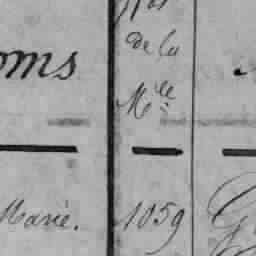 Nos
oms de la
Mle
Marie. 1059 G